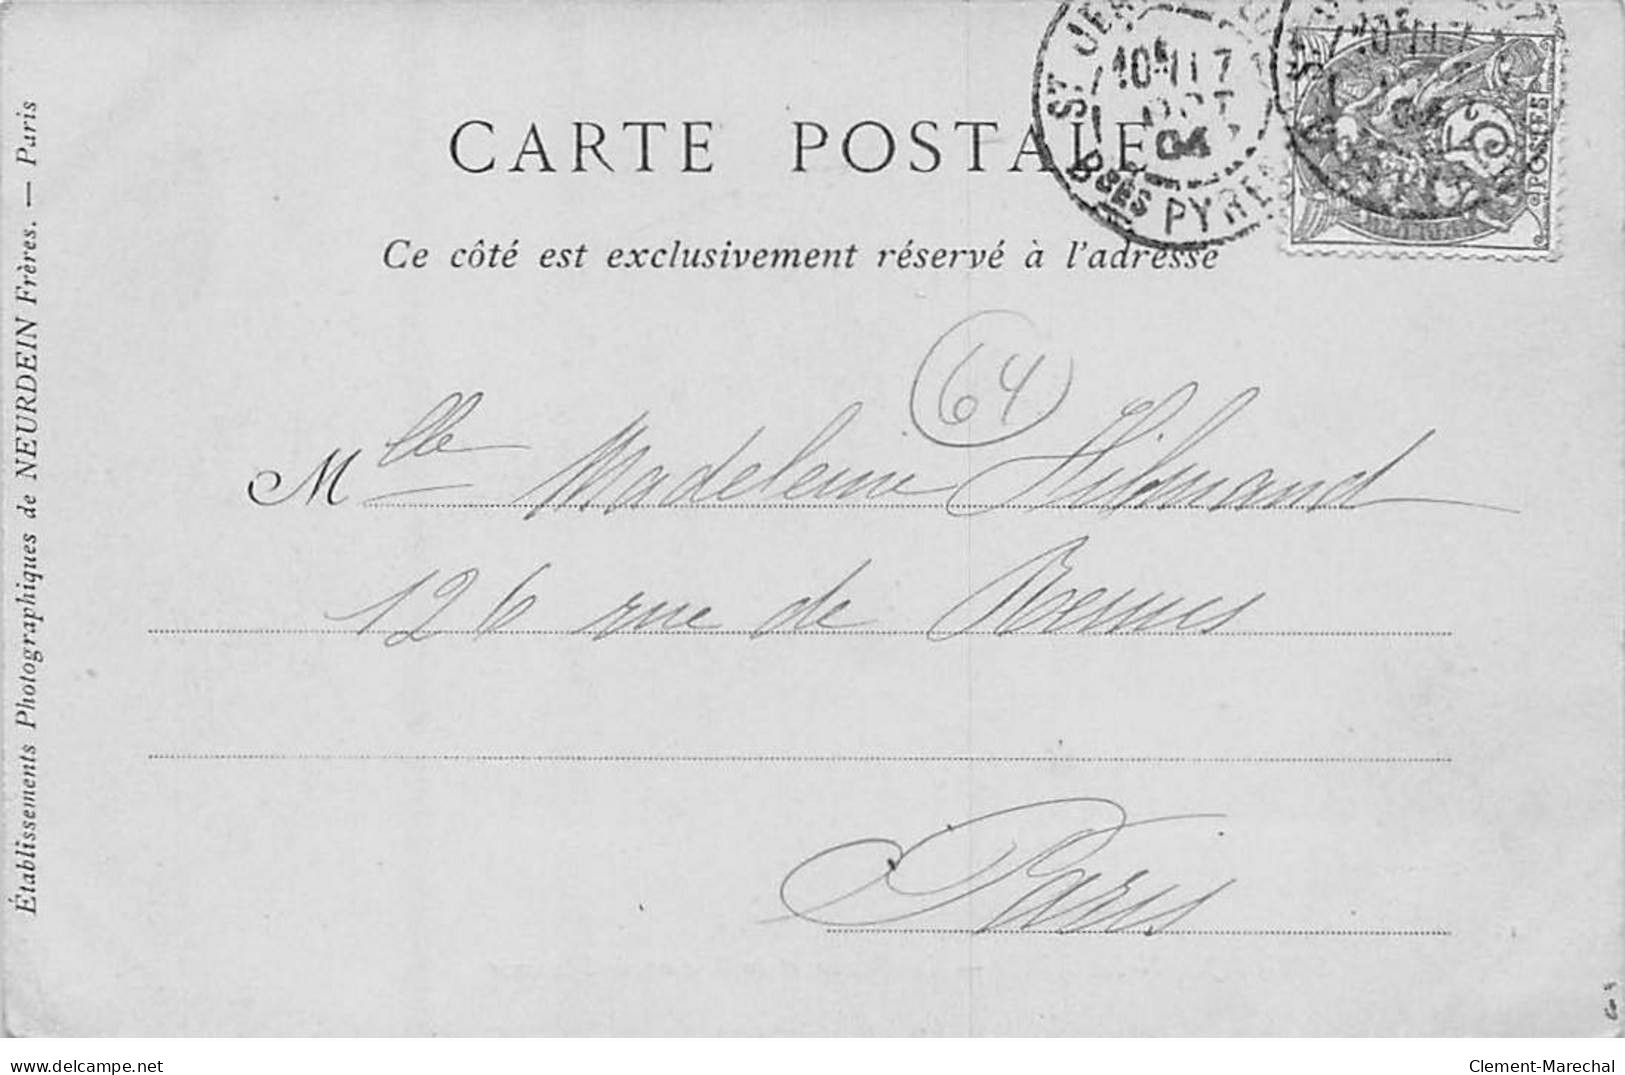 CARTE POSTALE
Ce côté est exclusivement réservé à l'adresse
64
Mlle Madeleine
126 rue de Rennes
Paris
Établissements Photographiques de NEURDEIN Frères. — Paris
ST JEA
10
04
Bses PYREN
5
POSTES
www.delcampe.net
Clement-Marechal